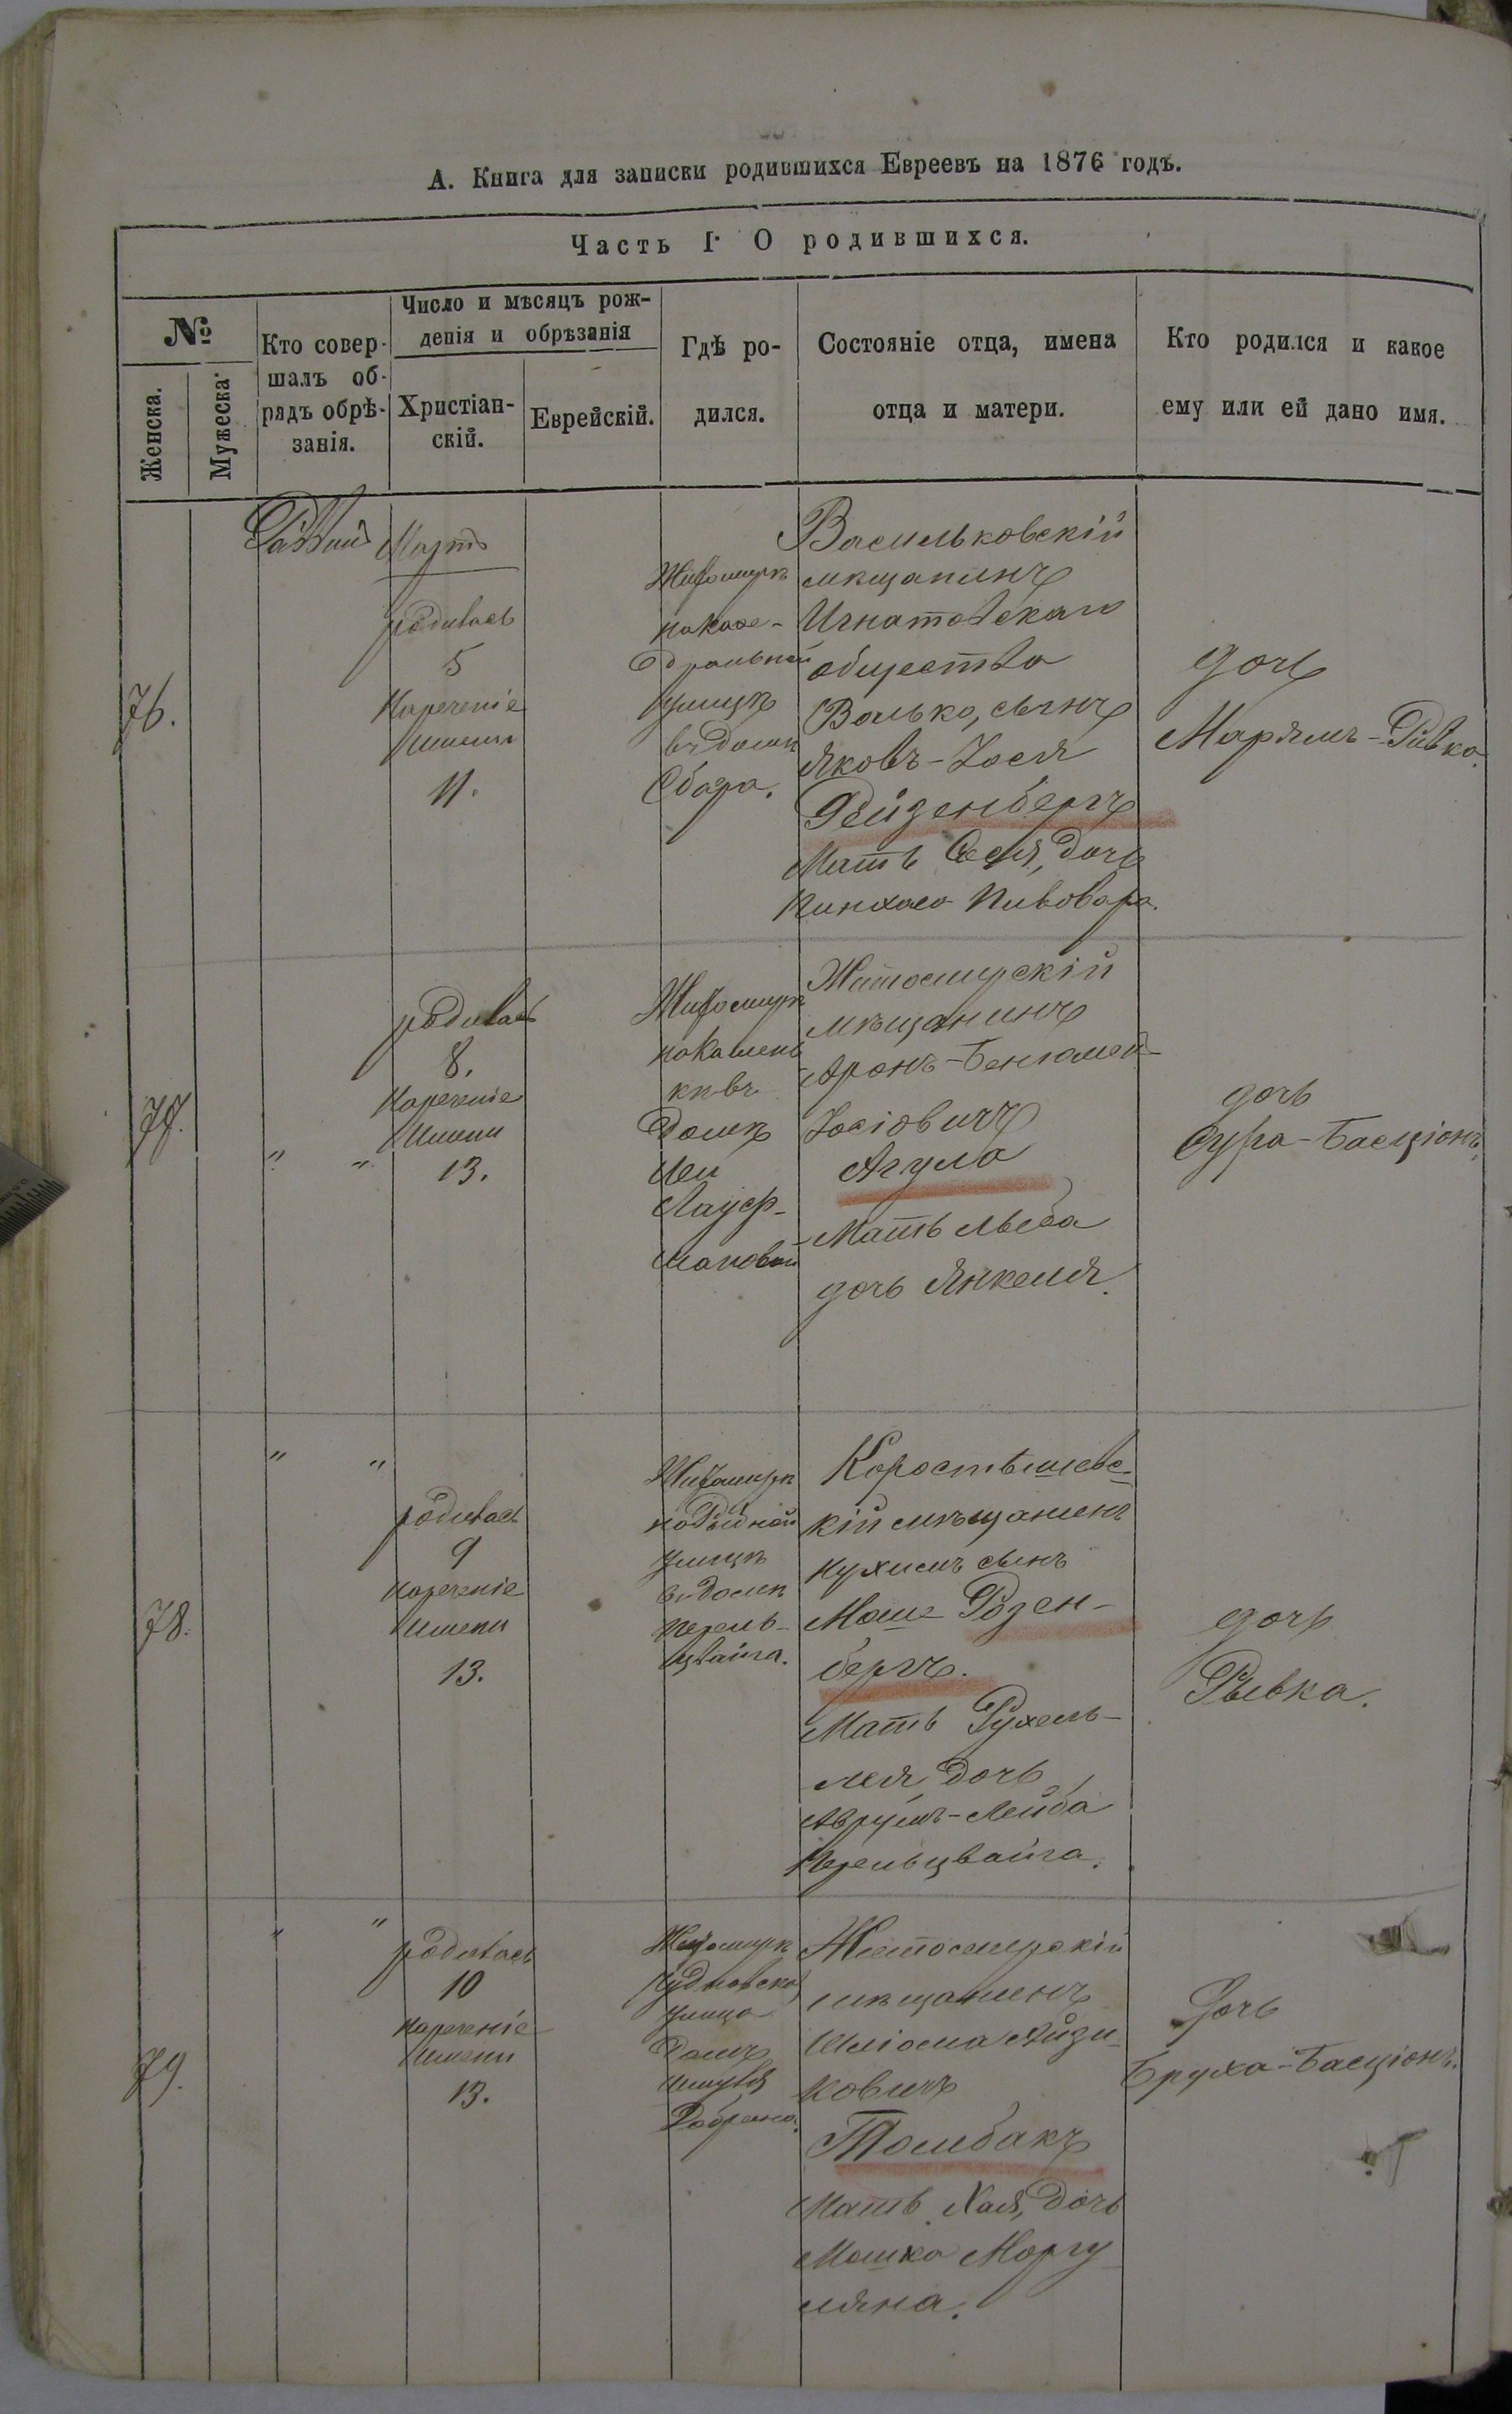 А. Книга для записки родившихся Евреевъ на 1876 годъ.
Часть I· О родившихся.
№
Женска.
Мужеска·
Кто совер-
шалъ об-
рядъ обрѣ-
занія.
Число и мѣсяцъ рож-
денія и обрѣзанія
Христіан-
скій.
Еврейскій.
Гдѣ ро-
дился.
Состояніе отца, имена
отца и матери.
Кто родился и какое
ему или ей дано имя.
76.
Раввинъ
Мартъ
родилась
5
Нареченіе
Имени
11.
Житомирѣ
на Кафе-
дральной
улицѣ
въ домѣ
Сбара.
Васильковскій
мѣщанинъ
Игнатовскаго
общества
Волько, сынъ
Яковъ-Іося
Рейзенбергъ
Мать Сося, дочь
Пинхаса Пивовара.
дочь
Марямъ-Ривка.
77.
" "
родилась
8.
Нареченіе
Имени
13.
Житомирѣ
на Камен
кѣ въ
домѣ
Леи
Лауф-
мановой
Житомирскій
мѣщанинъ
Аронъ-Беньомен
Іосіовичъ
Агула
Мать
дочь Янкеля.
дочь
Сура-Басціонъ.
78.
" "
родилась
9
нареченіе
Имени
13.
Житомирѣ
на Рыбной
улицѣ
въ домѣ
Перель-
цвайга.
Коростышевс-
кій мѣщанинъ
Нухимъ сынъ
Мош- Розен-
бергъ.
Мать Рухель-
лея, дочь
Аврумъ-Лейба
Перельцвайга.
дочь
Рывка.
79.
" "
родилась
10
нареченіе
Имени
13.
Житомирѣ
Чудновская
улица
домъ
Шмуля
Житомирскій
мѣщанинъ
Шліома Айзи-
ковичъ
Томбакъ
Мать Хая, дочь
Мошка Маргу
ляна.
Дочь
Бруха-Басціонъ.